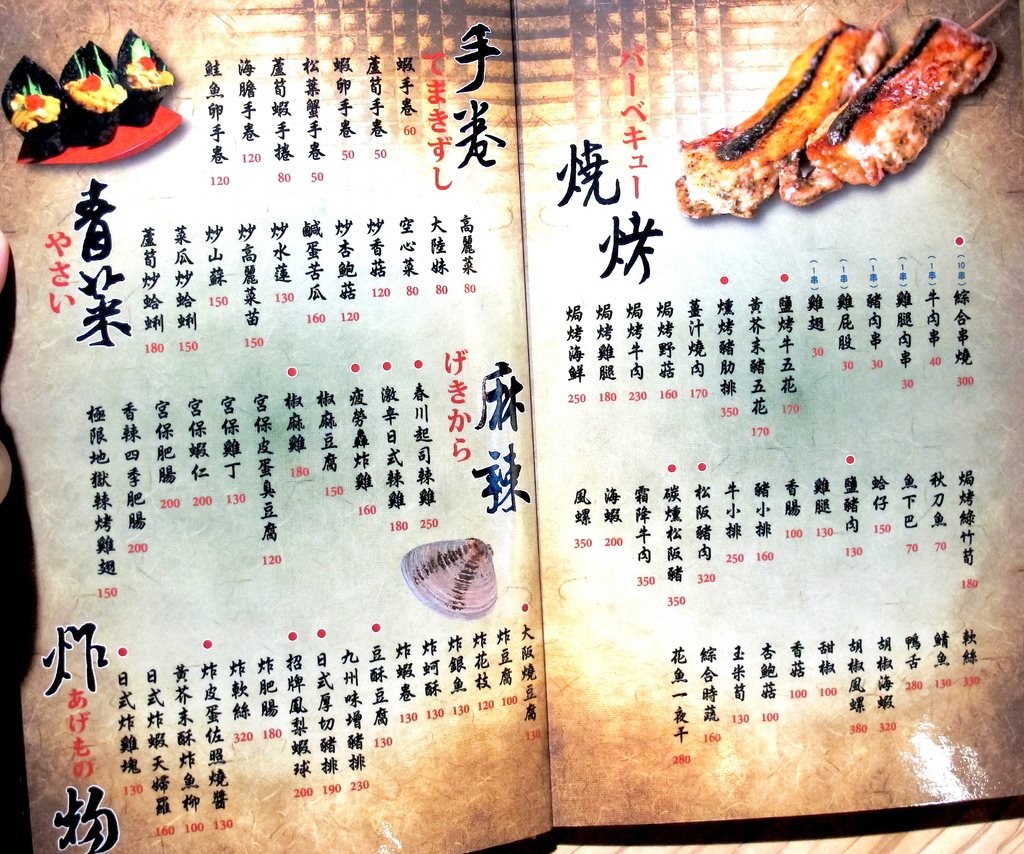 手卷
てまきずし
蝦手卷 60
蘆荀手卷 50
蝦卵手卷 50
松葉蟹手卷 50
蘆荀蝦手捲 80
海膽手卷 120
鮭魚卵手卷 120
青菜
やさい
高麗菜 80
大陸妹 80
空心菜 80
炒香菇 120
炒杏鮑菇 120
鹹蛋苦瓜 160
炒水蓮 130
炒高麗菜苗 150
炒山蘇 150
菜瓜炒蛤蜊 150
蘆荀炒蛤蜊 180
麻辣
げきから
春川起司辣雞 250
激辛日式辣雞 180
疲勞轟炸雞 160
椒麻豆腐 150
椒麻雞 180
宮保皮蛋臭豆腐 120
宮保雞丁 130
宮保蝦仁 200
宮保肥腸 200
香辣四季肥腸 200
極限地獄辣烤雞翅 150
炸物
あげもの
大阪燒豆腐 130
炸豆腐 100
炸花枝 120
炸銀魚 130
炸蚵酥 130
炸蝦卷 130
豆酥豆腐 130
九州味增豬排 230
日式厚切豬排 190
招牌鳳梨蝦球 200
炸肥腸 180
炸軟絲 320
炸皮蛋佐照燒醬 130
黃芥末酥炸魚柳 100
日式炸蝦天婦羅 160
日式炸雞塊 130
燒烤
バーベキュー
(10串)綜合串燒 300
(1串)牛肉串 40
(1串)雞腿肉串 30
(1串)豬肉串 30
(1串)雞屁股 30
(1串)雞翅 30
鹽烤牛五花 170
黃芥末豬五花 170
燻烤豬肋排 350
薑汁燒肉 170
焗烤野菇 160
焗烤牛肉 230
焗烤雞腿 180
焗烤海鮮 250
焗烤綠竹荀 180
秋刀魚 70
魚下巴 70
蛤仔 150
鹽豬肉 130
雞腿 130
香腸 100
豬小排 160
牛小排 250
松阪豬肉 320
碳燻松阪豬 350
霜降牛肉 350
海蝦 200
風螺 350
軟絲 330
鯖魚 130
鴨舌 280
胡椒海蝦 320
胡椒風螺 380
甜椒 100
香菇 100
杏鮑菇 100
玉米荀 130
綜合時蔬 160
花魚一夜干 280